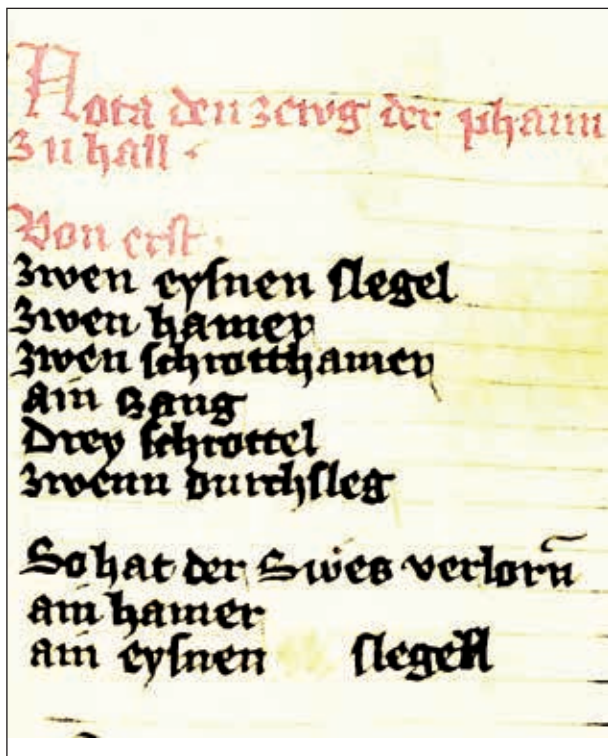 Nota den zewg der phann
zu hall ·
Von erst ·
zwen eysnen slegel
zwen hamer
zwen schrotthamer
ain zang
Drey schrottel
zwenn durchsleg
So hat der Swes verlorn̄
ain hamer
ain eysnen slegell